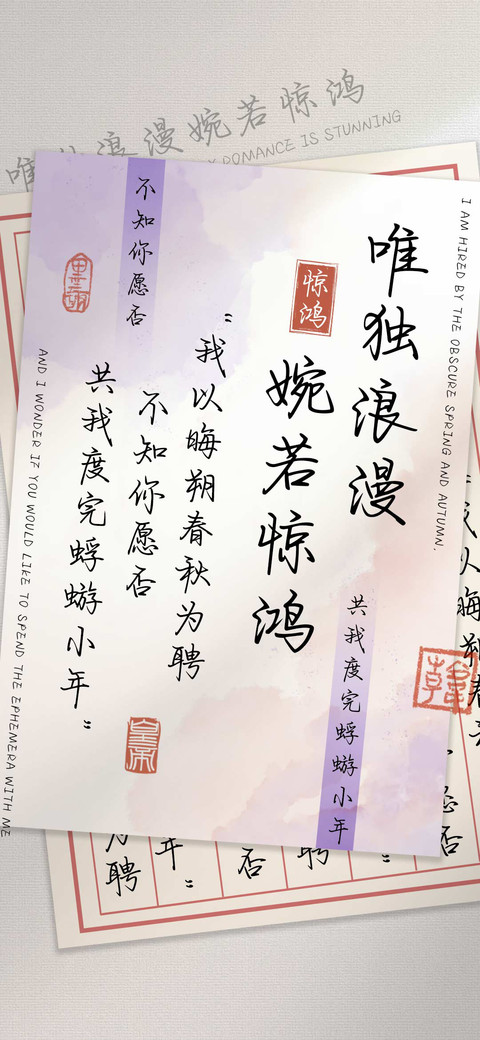 唯独浪漫婉若惊鸿
ROMANCE IS STUNNING
I AM HIRED BY THE OBSCURE SPRING AND AUTUMN.
唯独浪漫
惊鸿
婉若惊鸿
共我度完蜉蝣小年
"我以晦朔春秋为聘
不知你愿否
共我度完蜉蝣小年"
不知你愿否
AND I WONDER IF YOU WOULD LIKE TO SPEND THE EPHEMERA WITH ME
"我以晦朔春
为聘
年"
否
聘
"
愿否